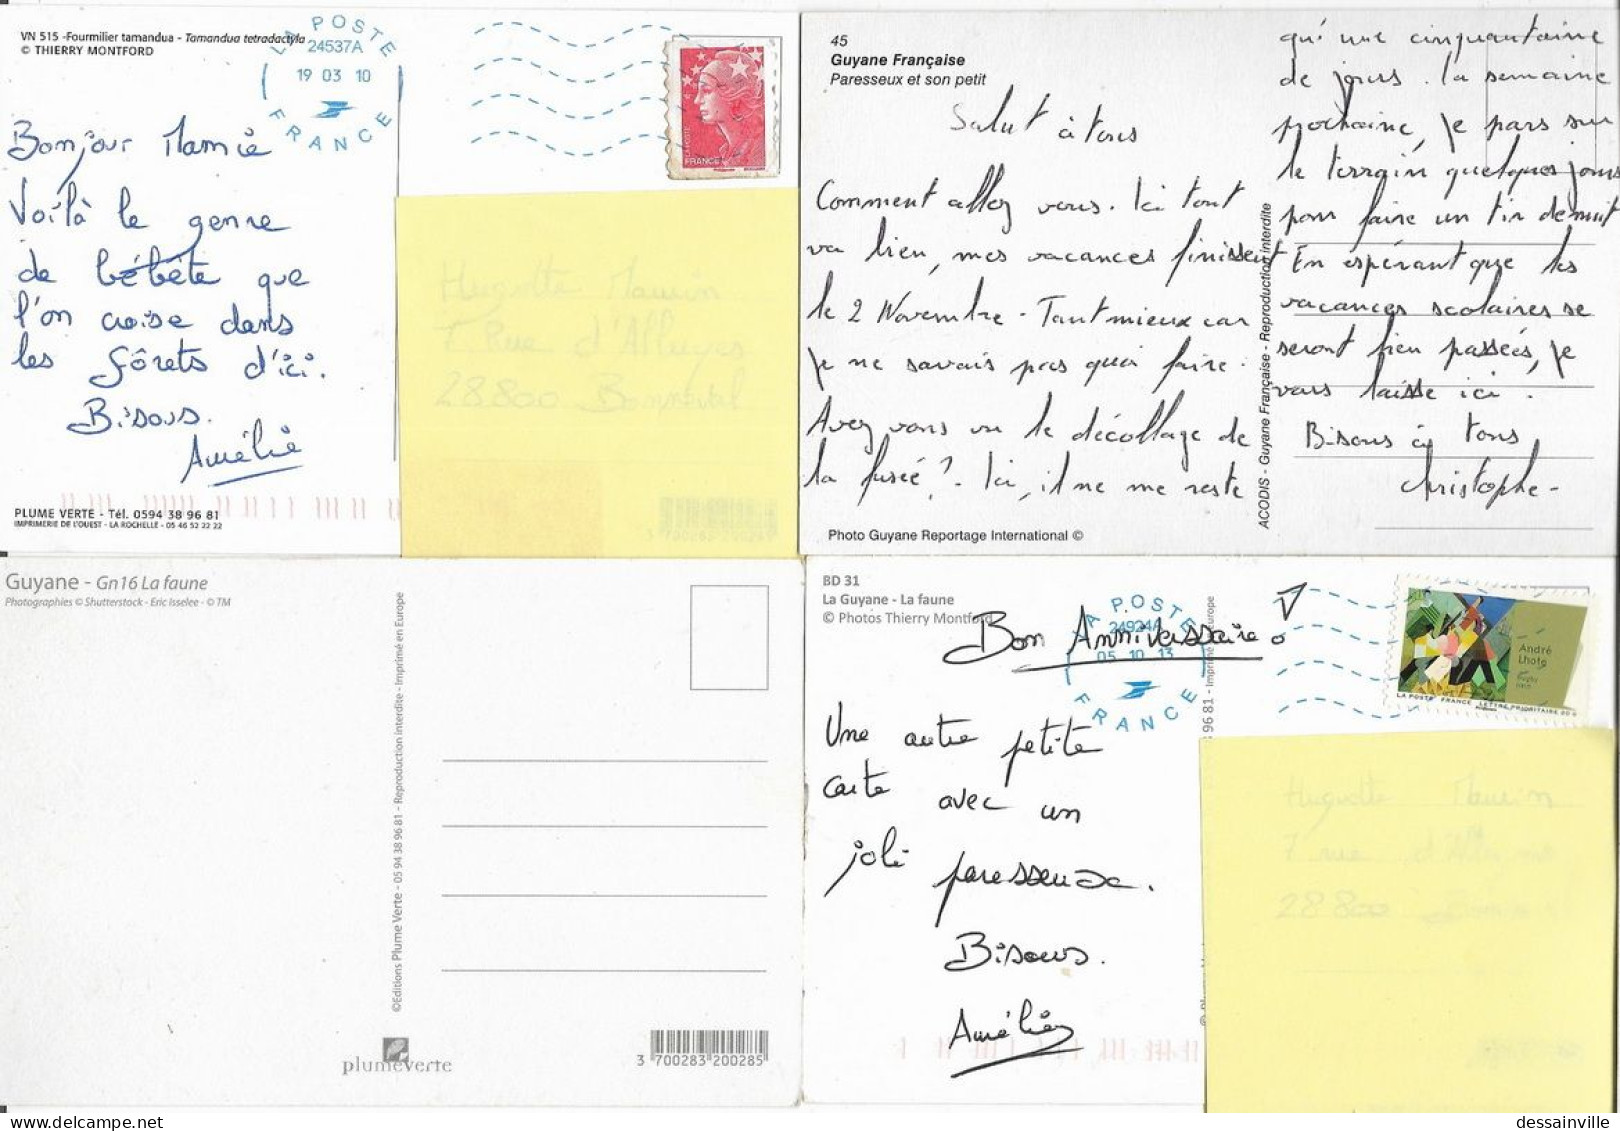 VN 515 -Fourmilier tamandua - Tamandua tetradactyla
© THIERRY MONTFORD
LA POSTE
24537A
19 03 10
FRANCE
LA POSTE
FRANCE
Bonjour Mamie
Voilà le genre
de bébête que
l'on croise dans
les fôrets d'ici.
Bisous.
Amélie
PLUME VERTE - Tél. 0594 38 96 81
IMPRIMERIE DE L'OUEST - LA ROCHELLE - 05 46 52 22 22
45
Guyane Française
Paresseux et son petit
Salut à tous
Comment allez vous. Ici tout
va bien, mes vacances finissent
le 2 Novembre - Tant mieux car
je ne savais pas quoi faire.
Avez vous vu le décollage de
la fusée? Ici, il ne me reste
qu'une cinquantaine
de jours. la semaine
prochaine, je pars sur
le terrain quelques jours
pour faire un tir de nuit
En espérant que les
vacances scolaires se
seront bien passées, je
vous laisse ici.
Bisous à tous
Christophe -
ACODIS - Guyane Française - Reproduction interdite
Photo Guyane Reportage International ©
Guyane - Gn16 La faune
Photographies © Shutterstock - Eric Isselee - © TM
©Editions Plume Verte - 05 94 38 96 81 - Reproduction interdite - Imprimé en Europe
plumeverte
3 700283 200285
BD 31
La Guyane - La faune
© Photos Thierry Montford
LA POSTE
24924A
05 10 13
FRANCE
André
Lhote
Rugby
LA POSTE FRANCE LETTRE PRIORITAIRE 20 g
Bon Anniversaire!
Une autre petite
carte avec un
joli paresseux.
Bisous.
Amélie
96 81 - Imprimé en Europe
dessainville